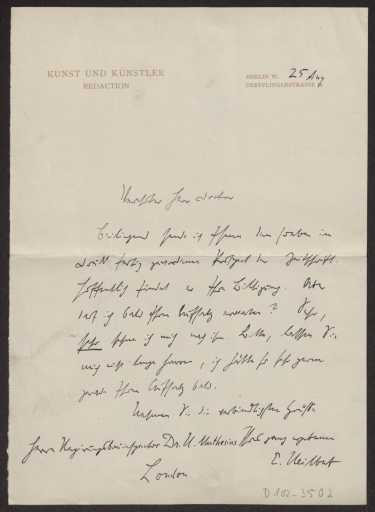 KUNST UND KÜNSTLER
REDACTION
BERLIN W. 25 Aug
DERFFLINGERSTRASSE
Verehrter Herr Doctor
beiliegend sende ich Ihnen den soeben im
Druck fertig gewordenen Prospect der Zeitschrift.
Hoffentlich findet er Ihre Billigung. Bitte
darf ich bald Ihren Aufsatz erwarten? Sehr,
sehr, lassen Sie
mich nicht lange, ich hätte so sehr gerne
Ihren Aufsatz bald.
Nehmen Sie die verbindlichsten Grüße
Herrn Regierungsbauinspector Dr. H. Muthesius Ihres ganz ergebenen
London
E. Heilbut
D 102-3502